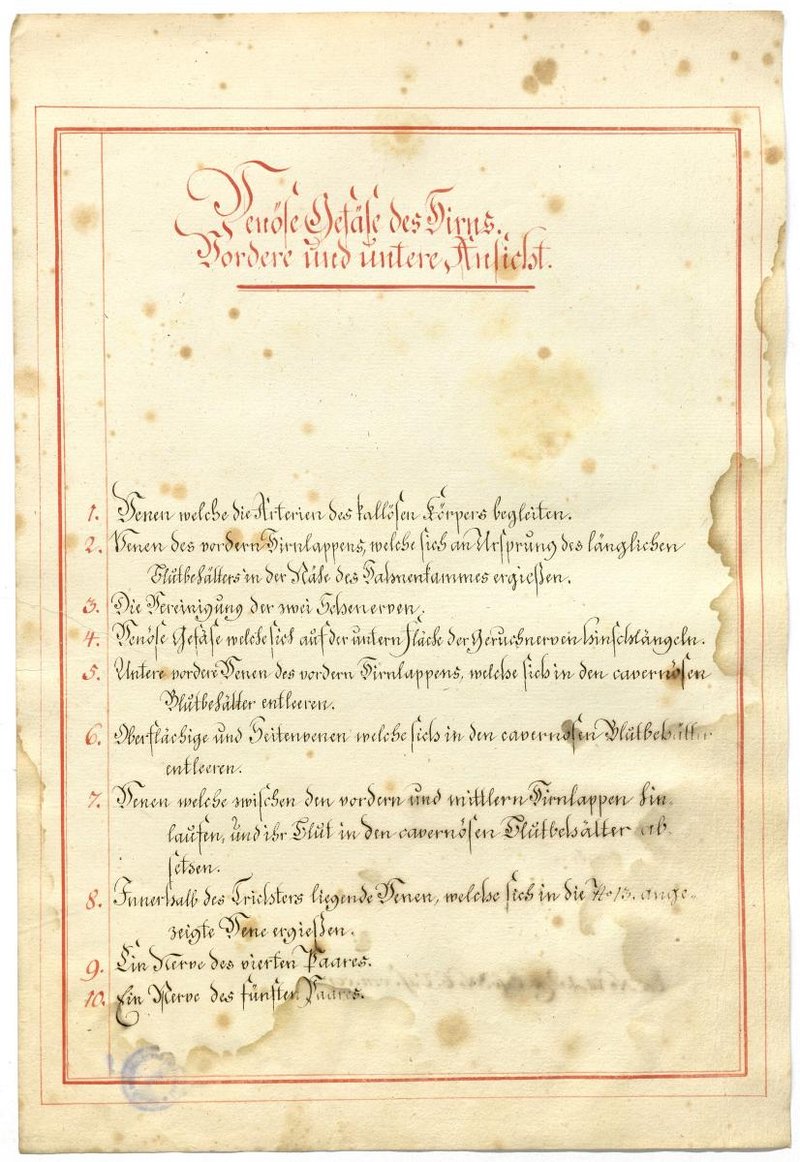 Venöse Gefäse des Hirns.
Vordere und untere Ansicht.
1. Venen welche die Arterien des kallösen Körpers begleiten.
2. Venen des vordern Hirnlappens, welche sich an Ursprung des länglichen
Blutbehälters in der Nähe des Hahnenkammes ergießen.
3. Die Vereinigung der zwei Sehenerven.
4. Venöse Gefäse welche sich auf der untern Fläche der Geruchnerven hinschlängeln.
5. Untere vordere Venen des vordern Hirnlappens, welche sich in den cavernösen
Blutbehälter entleeren.
6. Oberflächige und Seitenvenen welche sich in den cavernösen Blutbehälter
entleeren.
7. Venen welche zwischen den vordern und mittlern Hirnlappen hin-
laufen, und ihr Blut in den cavernösen Blutbehälter ab-
setzen.
8. Innerhalb des Trichters liegende Venen, welche sich in die No 13. ange-
zeigte Vene ergießen.
9. Ein Nerve des vierten Paares.
10. Ein Nerve des fünften Paares.